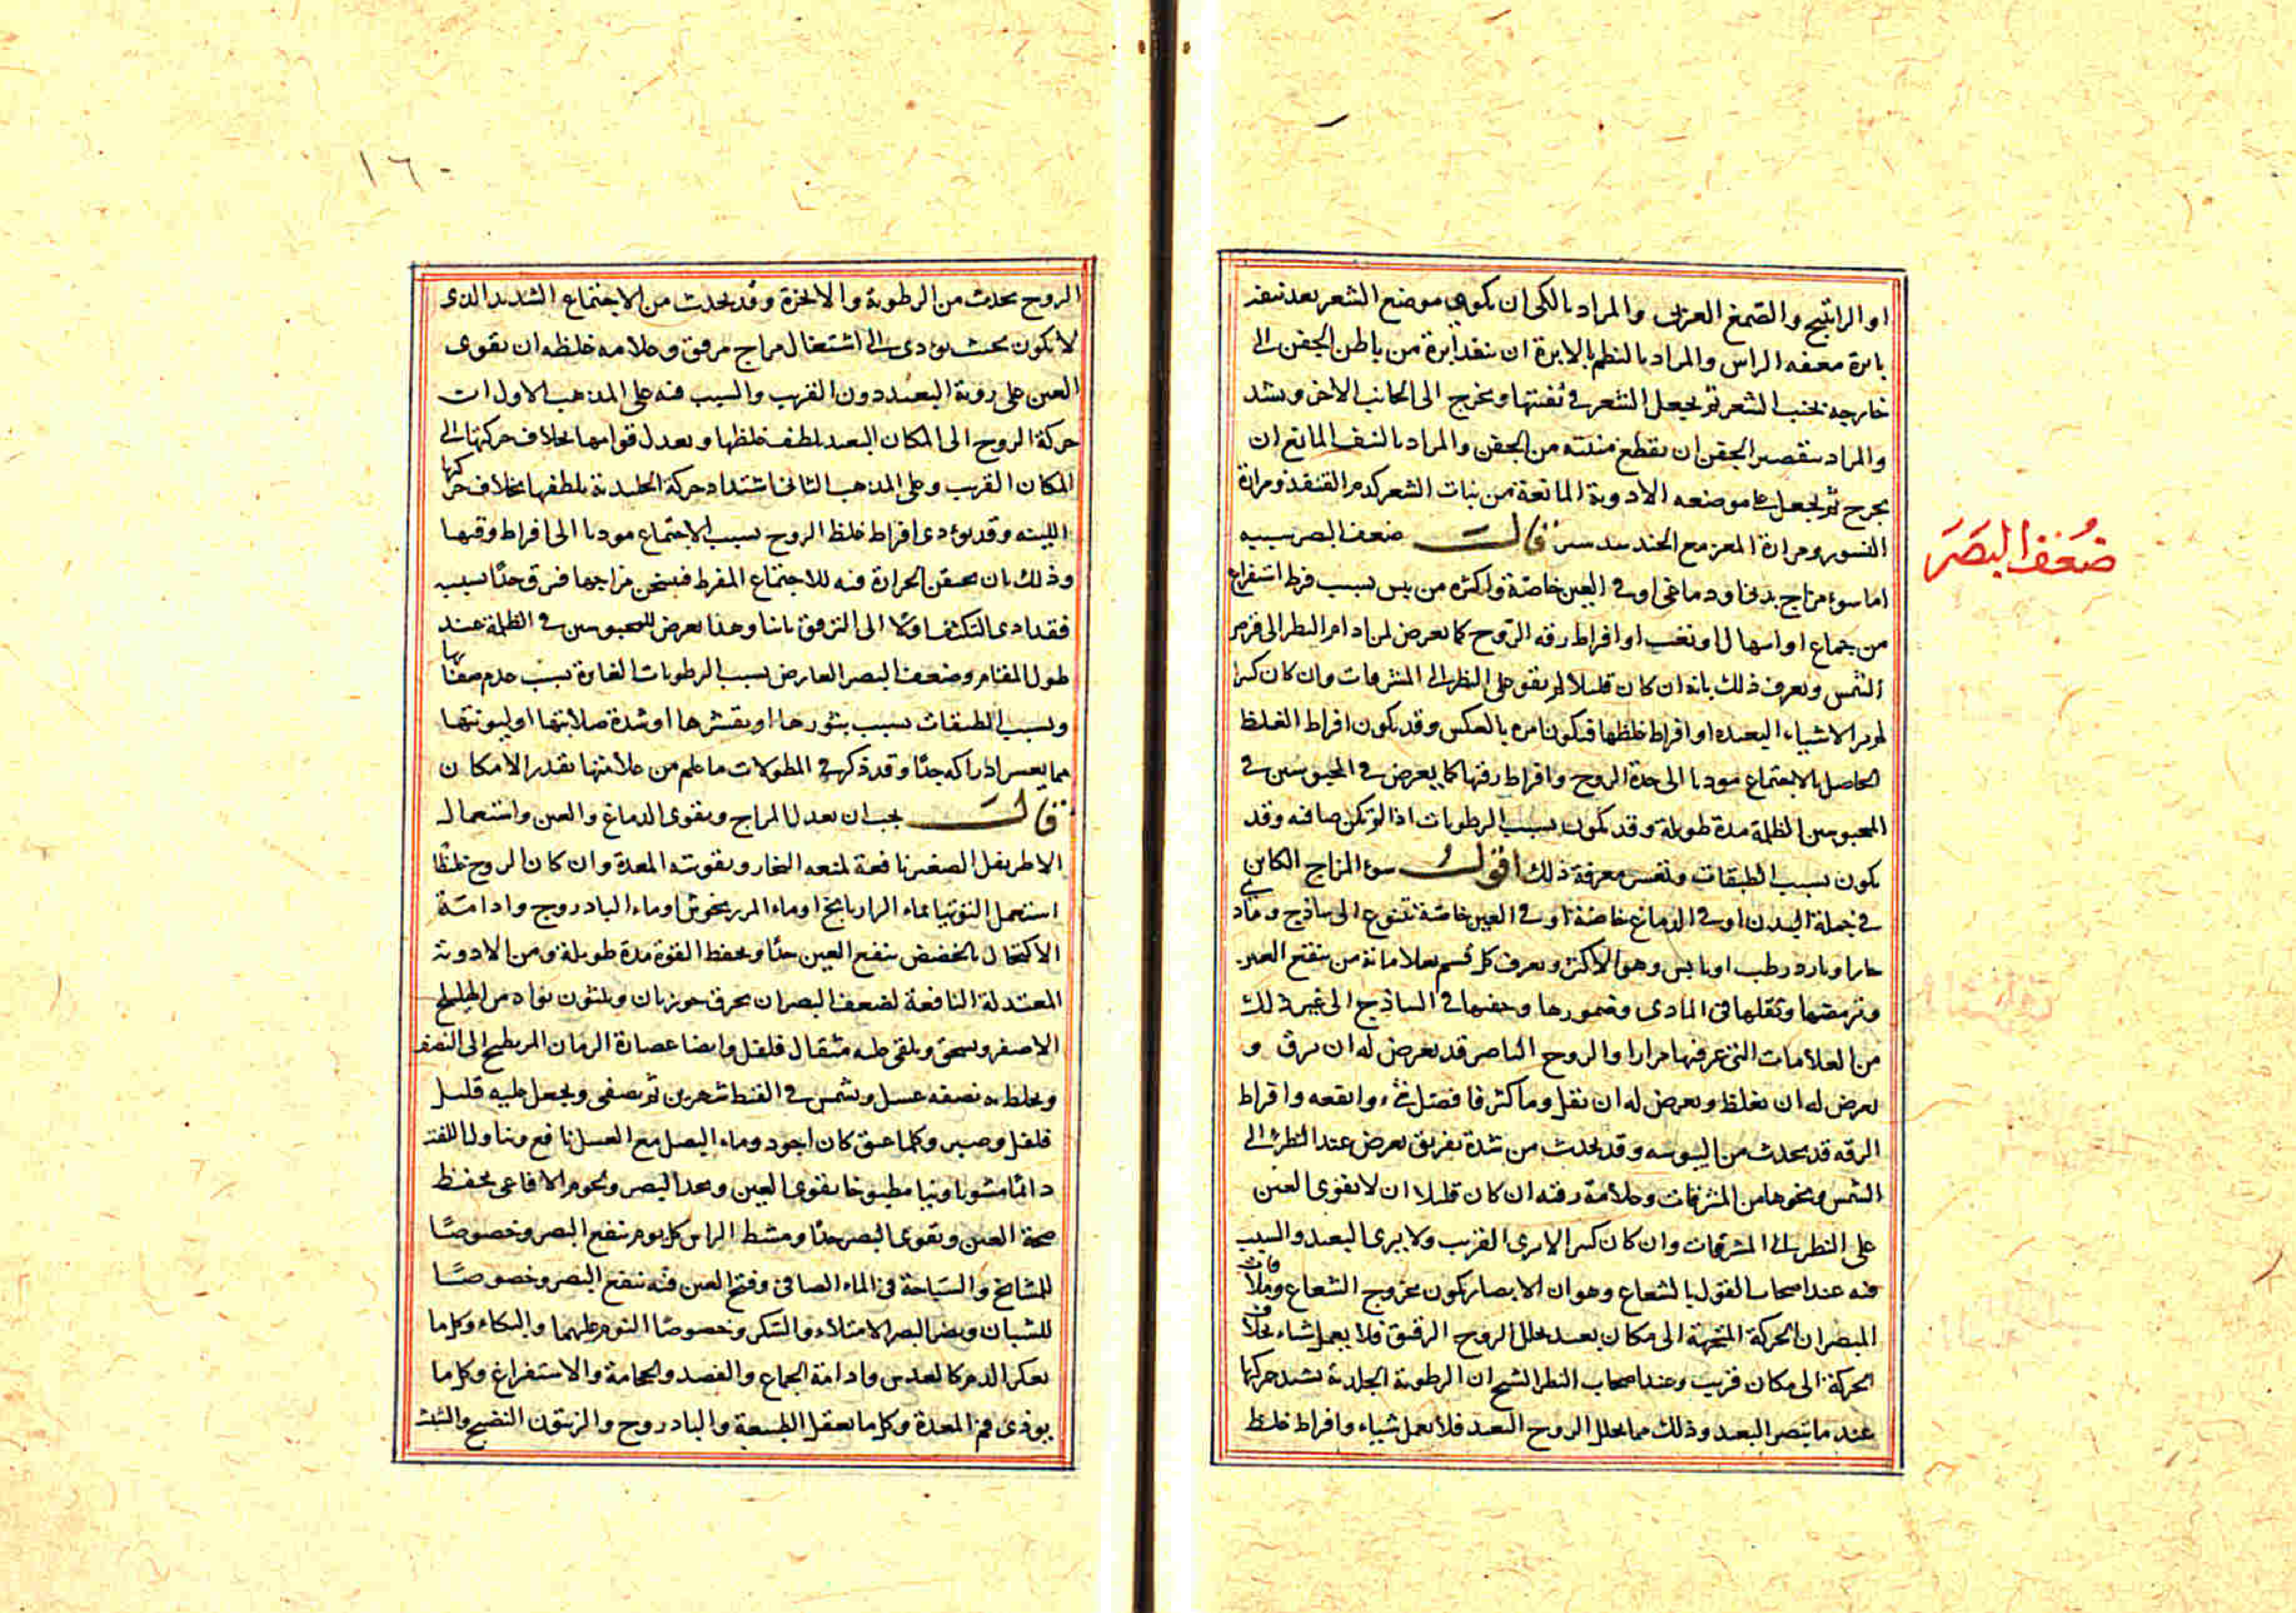 او الراتينج والصمغ العربى والمراد بالكى ان يكوى موضع الشعر بعد نتفه
بابرة معقفه الراس والمراد بالنظم بالابرة ان ينفد ابرة من باطن الجفن الى
خارجه بجنب الشعر ثم يجعل الشعر فى ثقبتها ويخرج الى الجانب الاخر ويشد
والمراد بتقصير الجفن ان يقطع منبته من الجفن والمراد بالنتف المانع ان
يجرح ثم يجعل على موضعه الادوية المانعة من نبات الشعر كدم القنفذ ومرارة
النسور ومرارة المعز مع الجندبيدستر قال ضعف البصر سببه
ضعف البصر
اما سوء مزاج بدنى او دماغى او فى العين خاصة واكثره من يبس بسبب فرط استفراغ
من جماع او اسهال او تعب او افراط رقه الروح كما يعرض لمن ادام النظر الى قرص
الشمس ويعرف ذلك بانه ان كان قليلا لم يقو على النظر الى المشرقات وان كان كثيرا
لم ير الاشياء البعيده او افراط غلظها فيكون امره بالعكس وقد يكون افراط الغلظ
الحاصل بالاجتماع موديا الى حدة الروح وافراط رقتها كما يعرض فى المحبوسين فى
المحبوسين الظلمة مدة طويلة وقد يكون بسبب الرطوبات اذا لم تكن صافيه وقد
يكون بسبب الطبقات وتعسر معرفة ذلك اقول سوء المزاج الكاين
فى جملة البدن او فى الدماغ خاصة او فى العين خاصة يتنوع الى ساذج ومادى
حار او بارد رطب او يابس وهو الاكثر ويعرف كل قسم بعلاماته من العين
وترمصها وثقلها فى المادى وضمورها وخفتها فى الساذج الى غير ذلك
من العلامات التى عرفتها مرارا والروح الباصر قد يعرض له ان يرق و
يعرض له ان يغلظ ويعرض له ان يقل وما كثر فافضل شىء وانفعه وافراط
الرقه قد يحدث من اليبوسه وقد يحدث من شدة تفريق يعرض عند النظر الى
الشمس ونحوها من المشرقات وعلامة رقته ان كان قليلا ان لا تقوى العين
على النظر الى المشرقات وان كان كثيرا لا يرى القريب ولا يرى البعيد والسبب
فيه عند اصحاب القول بالشعاع وهو ان الابصار يكون بخروج الشعاع وملاقات
المبصر ان الحركة المتجهة الى مكان بعيد يحلل الروح الرقيق فلا يعمل شياء بخلاف
الحركة الى مكان قريب وعند اصحاب النظر الشبح ان الرطوبة الجلدية يشتد حركتها
عند ما يتبصر البعيد وذلك مما يحلل الروح البعيد فلا يعمل شياء وافراط غلظ
١٦٠
الروح يحدث من الرطوبة والابخرة وقد يحدث من الاجتماع الشديد الذى
لا يكون بحيث يؤدى الى اشتعال مزاج مرقق وعلامه غلظه ان تقوى
العين على روية البعيد دون القريب والسبب فيه على المذهب الاول ان
حركة الروح الى المكان البعيد يلطف غلظها ويعدل قوامها بخلاف حركتها الى
المكان القريب وعلى المذهب الثانى اشتداد حركة الجليدية يلطفها بخلاف حركتها
اللينه وقد يؤدى افراط غلظ الروح بسبب الاجتماع موديا الى افراط رقتها
وذلك بان يحتقن الحرارة فيه للاجتماع المفرط فيسخن مزاجها فيرق جدا بسبب
فقد ادى التكثف اولا الى الترقق ثانيا وهذا يعرض للمحبوسين فى الظلمة عند
طول المقام وضعف البصر العارض بسبب الرطوبات الغايرة بسبب عدم صفائها
وبسبب الطبقات بسبب بثورها او تقشرها او شدة صلابتها او ليونتها
مما يعسر ادراكه جدا وقد ذكر فى المطولات ما علم من علامتها بقدر الامكان
قال يجب ان يعدل المزاج ويقوى الدماغ والعين واستعمال
الاطريفل الصغير نافعة لمنعه البخار وبقوته المعدة وان كان الروح غليظا
استعمل التوتيا بماء الرازيانج او ماء المرزنجوش او ماء البادروج وادامة
الاكتحال بالحضض ينفع العين جدا ويحفظ القوة مدة طويلة ومن الادوية
المعتدلة النافعة لضعف البصر ان يحرق جوزتان وثلثون نواة من اهليلج
الاصفر ويسحق ويلقى عليه مثقال فلفل وايضا عصارة الرمان المر يطبخ الى النصف
ويخلط به نصفه عسل ويشمس فى القيظ شهرين ثم يصفى ويجعل عليه قليل
فلفل وصبر وكلما عتق كان اجود وماء البصل مع العسل نافع وتناول اللفت
دائما مشويا ونيا مطبوخا يقوى العين ويحد البصر ولحوم الافاعى يحفظ
صحة العين ويقوى البصر جدا ومشط الراس كل يوم ينفع البصر وخصوصا
للمشايخ والسباحة فى الماء الصافى وفتح العين فيه ينفع البصر وخصوصا
للشبان ويضر البصر الامتلاء والسكر وخصوصا النوم عليهما والبكاء وكل ما
يعكر الدم كالعدس وادامة الجماع والفصد والحجامة والاستفراغ وكل ما
يوذى فم المعدة وكل ما يعقل الطبيعة والبادروج والزيتون النضيج والشبث